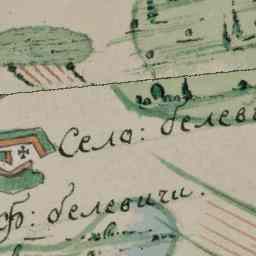 Село: белеви
ф: белевичи.